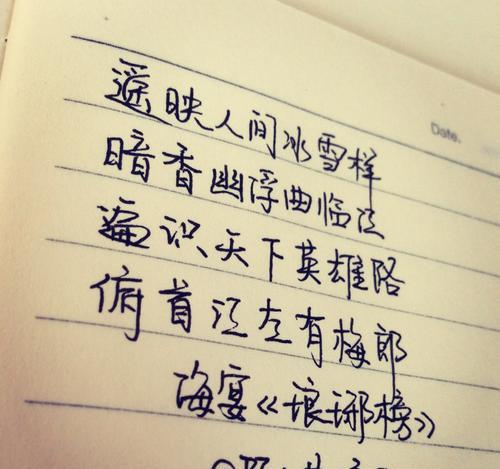 Date.
遥映人间冰雪样
暗香幽浮曲临江
遍识天下英雄路
俯首江左有梅郎
海宴《琅琊榜》